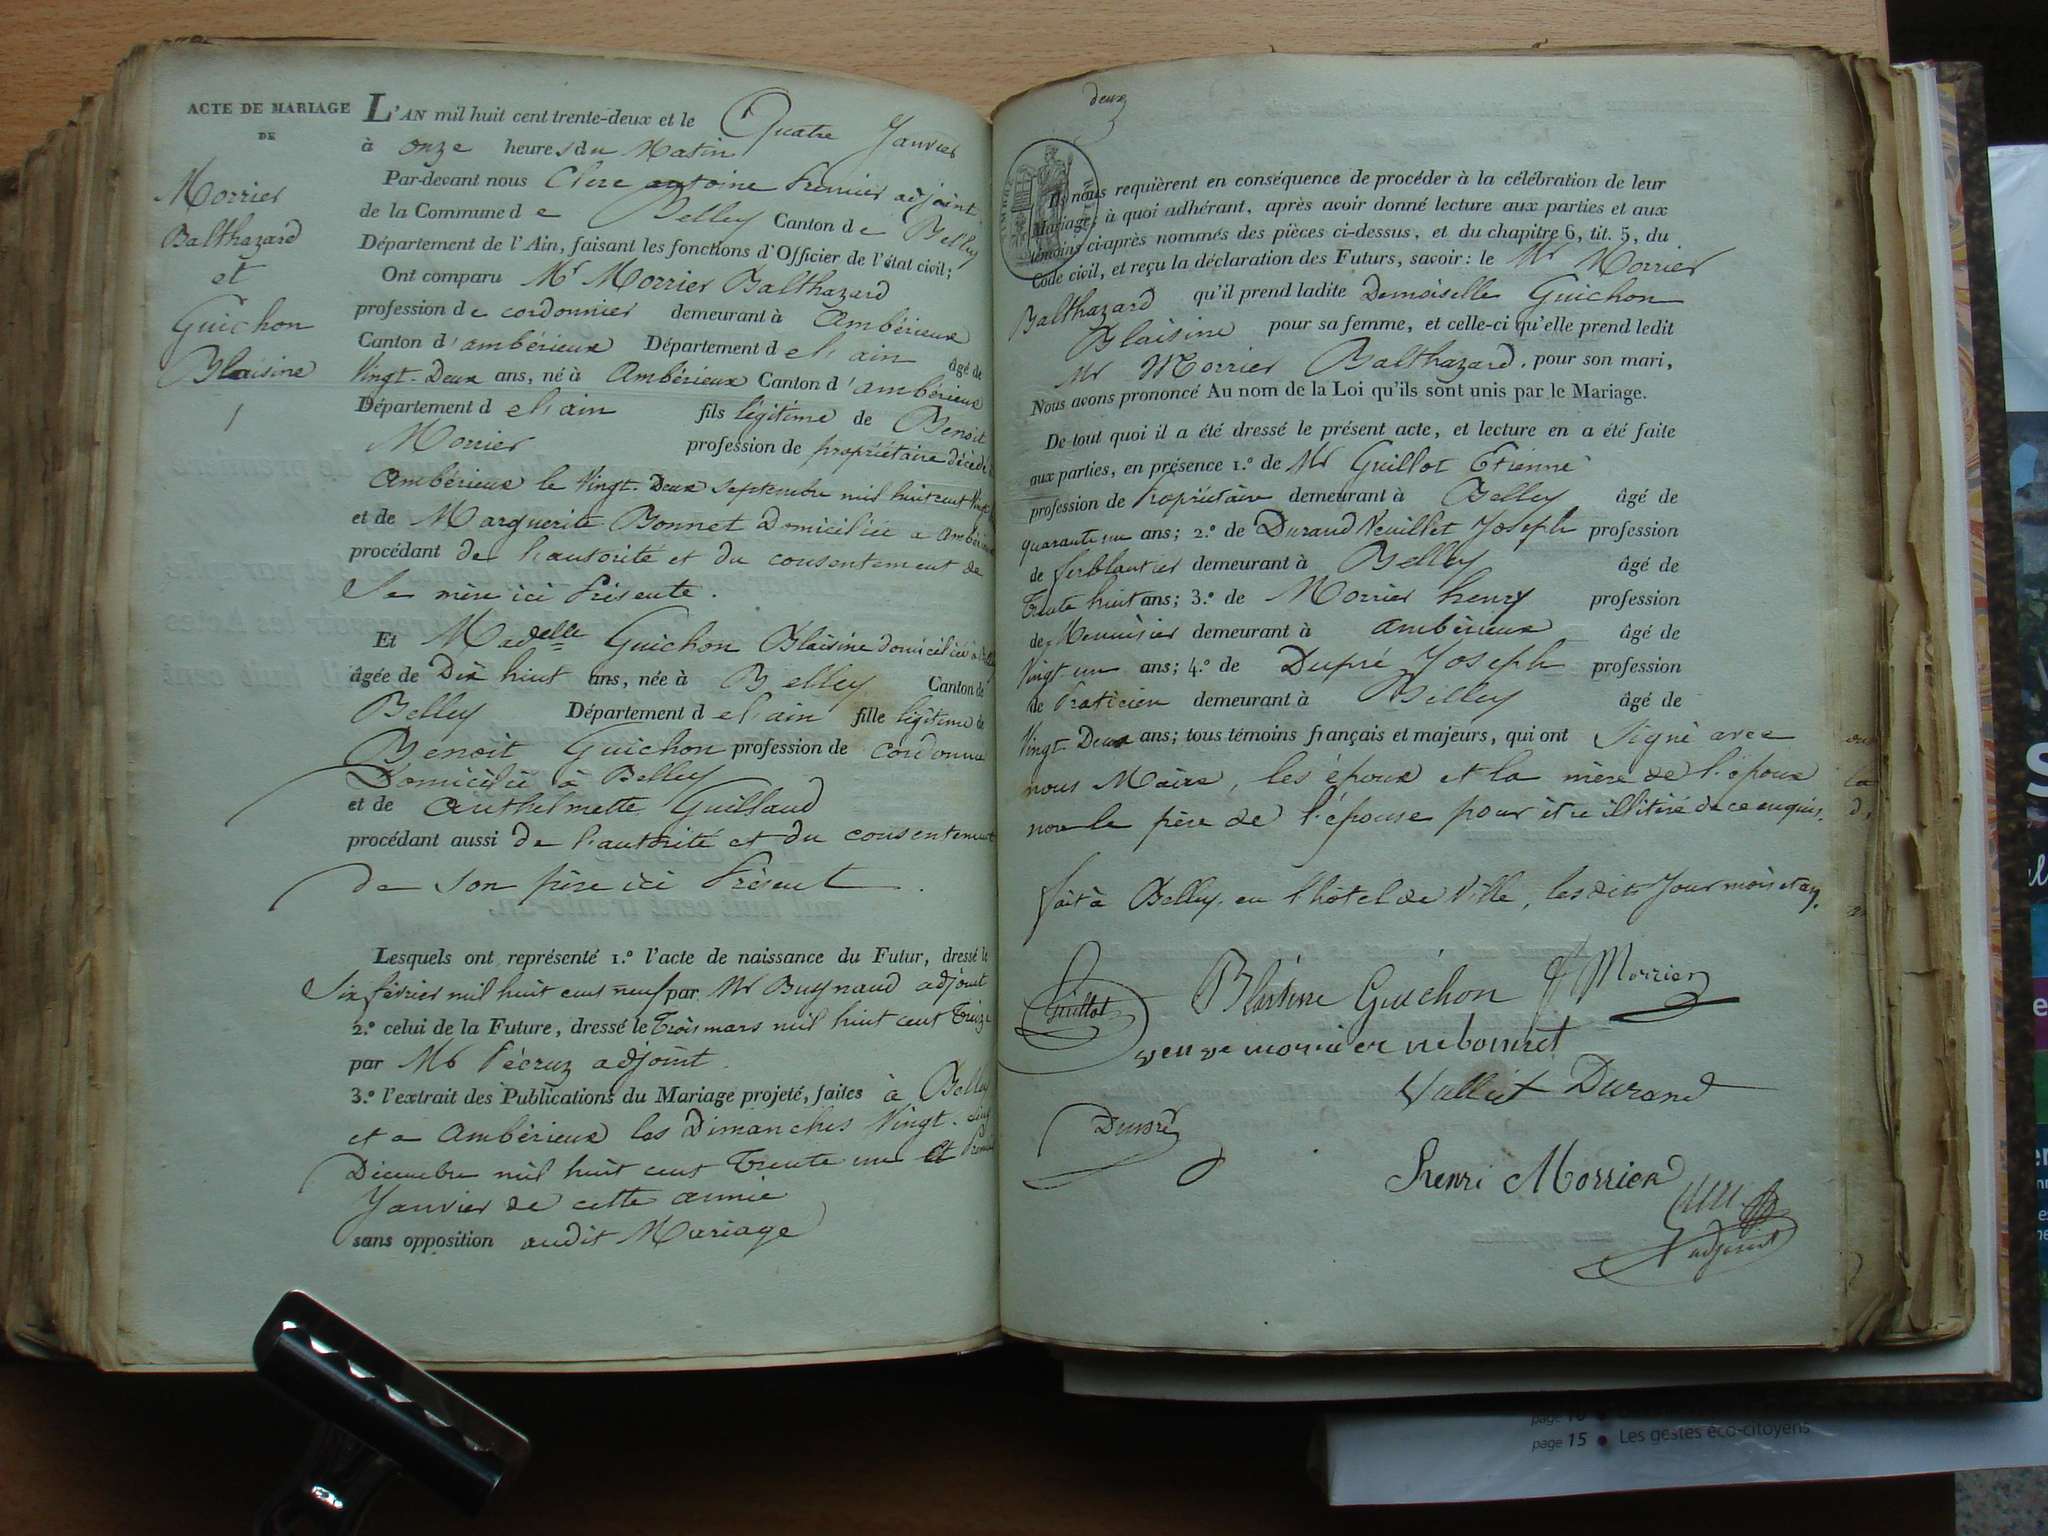 ACTE DE MARIAGE
DE
Morrier
Balthazard
et
Guichon
Blaisine
L'AN mil huit cent trente-deux et le Quatre Janvier
à onze heures du Matin
Par-devant nous Clerc antoine Premier adjoint
de la Commune de Belley Canton de Belley
Département de l'Ain, faisant les fonctions d'Officier de l'état civil;
Ont comparu Mr Morrier Balthazard
profession de cordonnier demeurant à Ambérieux
Canton d'ambérieux Département de l'ain âgé de
Vingt-Deux ans, né à Ambérieux Canton d'ambérieux
Département de l'ain fils légitime de Benoit
Morrier profession de propriétaire décédé
Ambérieux le Vingt-Deux septembre mil huit cent Vingt
et de Marguerite Bonnet Domiciliée a Ambérieux
procédant de l'autorité et du consentement de
Sa mère ici Présente.
Et Madelle Guichon Blaisine domiciliée à Belley
âgée de Dix huit ans, née à Belley Canton de
Belley Département de l'ain fille légitime de
Benoit Guichon profession de cordonnier
Domicilié à Belley
et de Anthelmette Guillaud
procédant aussi de l'autorité et du consentement
de son père ici Présent.
Lesquels ont représenté 1.º l'acte de naissance du Futur, dressé le
Six février mil huit cent neuf par Mr Buynaud adjoint
2.º celui de la Future, dressé le Trois mars mil huit cent Treize
par Mr Pécruz adjoint
3.º l'extrait des Publications du Mariage projeté, faites à Belley
et a Ambérieux les Dimanches Vingt-cinq
Décembre mil huit cent Trente un et Premier
Janvier de cette année
sans opposition audit Mariage
deux
TIMBRE
Ils nous requièrent en conséquence de procéder à la célébration de leur
Mariage; à quoi adhérant, après avoir donné lecture aux parties et aux
témoins ci-après nommés des pièces ci-dessus, et du chapitre 6, tit. 5, du
Code civil, et reçu la déclaration des Futurs, savoir: le Mr Morrier
Balthazard qu'il prend ladite Demoiselle Guichon
Blaisine pour sa femme, et celle-ci qu'elle prend ledit
Mr Morrier Balthazard. pour son mari,
Nous avons prononcé Au nom de la Loi qu'ils sont unis par le Mariage.
De tout quoi il a été dressé le présent acte, et lecture en a été faite
aux parties, en présence 1.º de Mr Guillot Etienne
profession de Propriétaire demeurant à Belley âgé de
quarante un ans; 2.º de Durand Veuillet Joseph profession
de ferblantier demeurant à Belley âgé de
Trente huit ans; 3.º de Morrier henry profession
de Menuisier demeurant à ambérieux âgé de
Vingt un ans; 4.º de Dupré Joseph profession
de Praticien demeurant à Belley âgé de
Vingt Deux ans; tous témoins français et majeurs, qui ont signé avec
nous Maire, les époux et la mère de l'époux
non le père de l'épouse pour être illitiré de ce enquis.
fait à Belley. en l'hôtel de Ville, les dits Jour mois et an.
Guillot
Blaisine Guichon
Morrier
veuve morrier ne bonnet
Vulliet Durand
Dupré
henri Morrier
adjoint
page 15 • Les gestes éco-citoyens